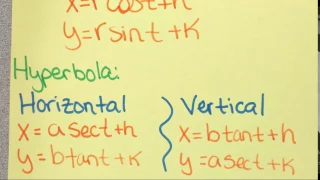 x=rcost+h
y=rsint+k
Hyperbola:
Horizontal
x=asect+h
y=btant+k
Vertical
x=btant+h
y=asect+k